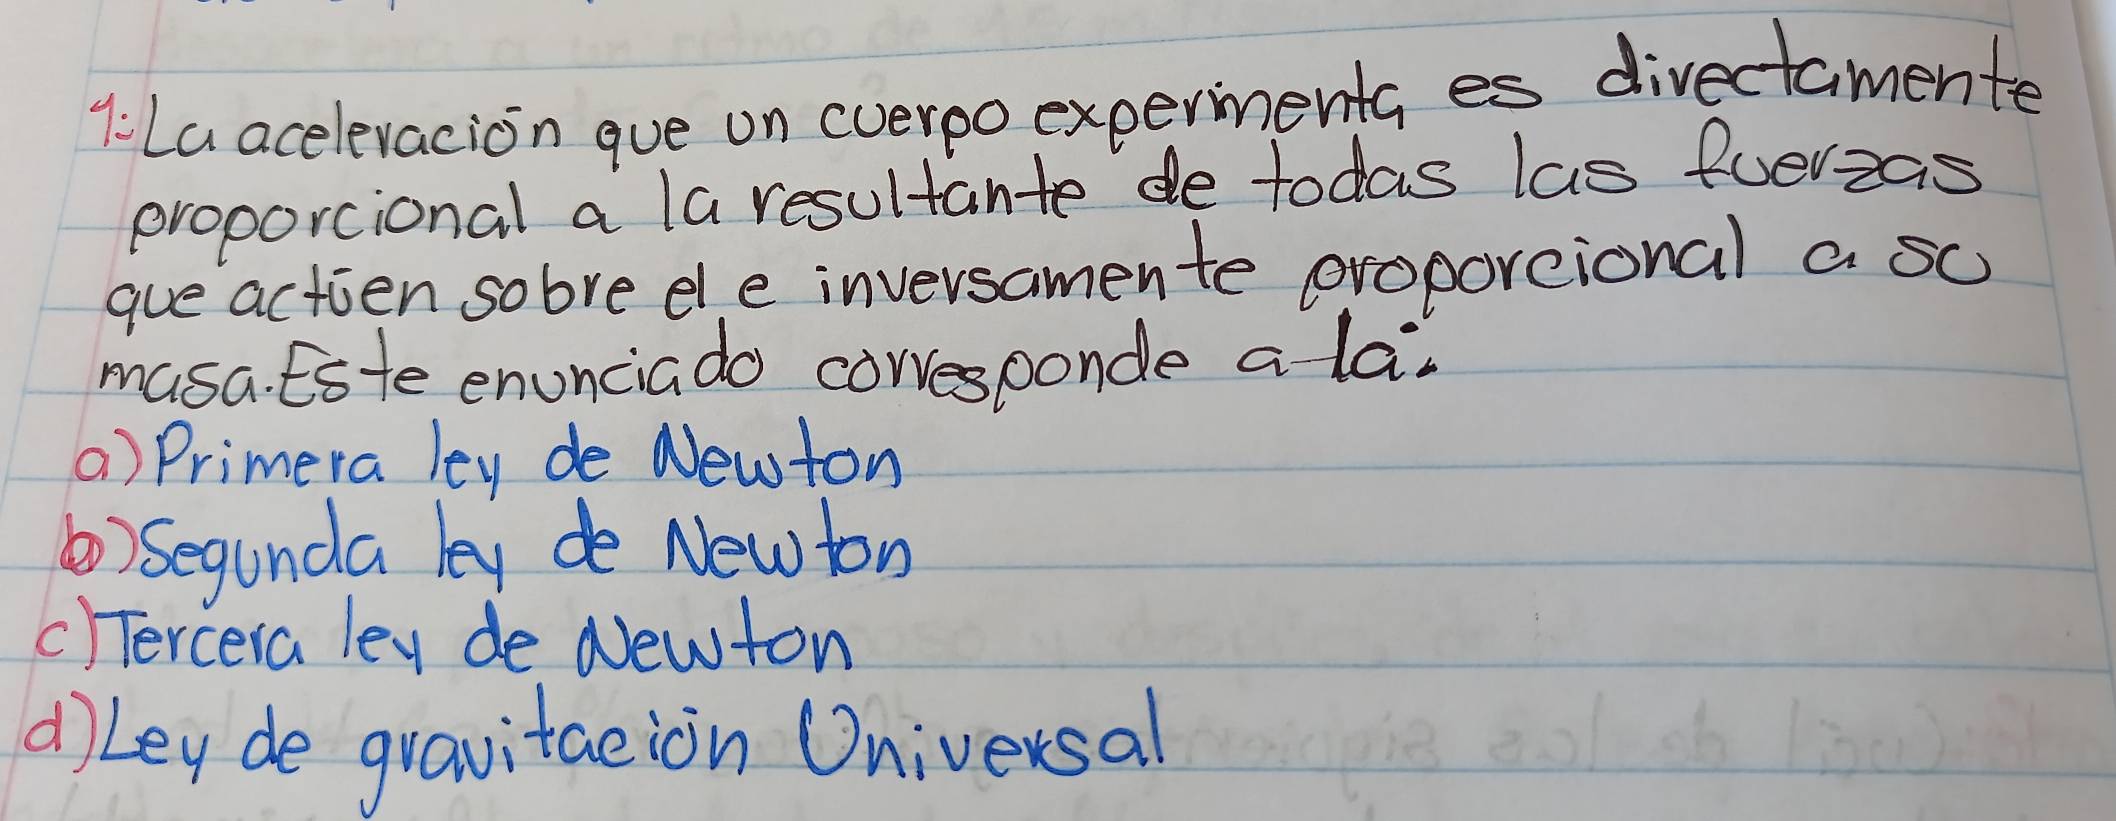 9: La aceleración que un cuerpo experimenta es directamente
proporcional a la resultante de todas las fuerzas
que actúen sobre el e inversamente proporcional a su
masa. Este enunciado corresponde a la:
a) Primera ley de Newton
b) Segunda ley de Newton
c) Tercera ley de Newton
d) Ley de gravitación Universal